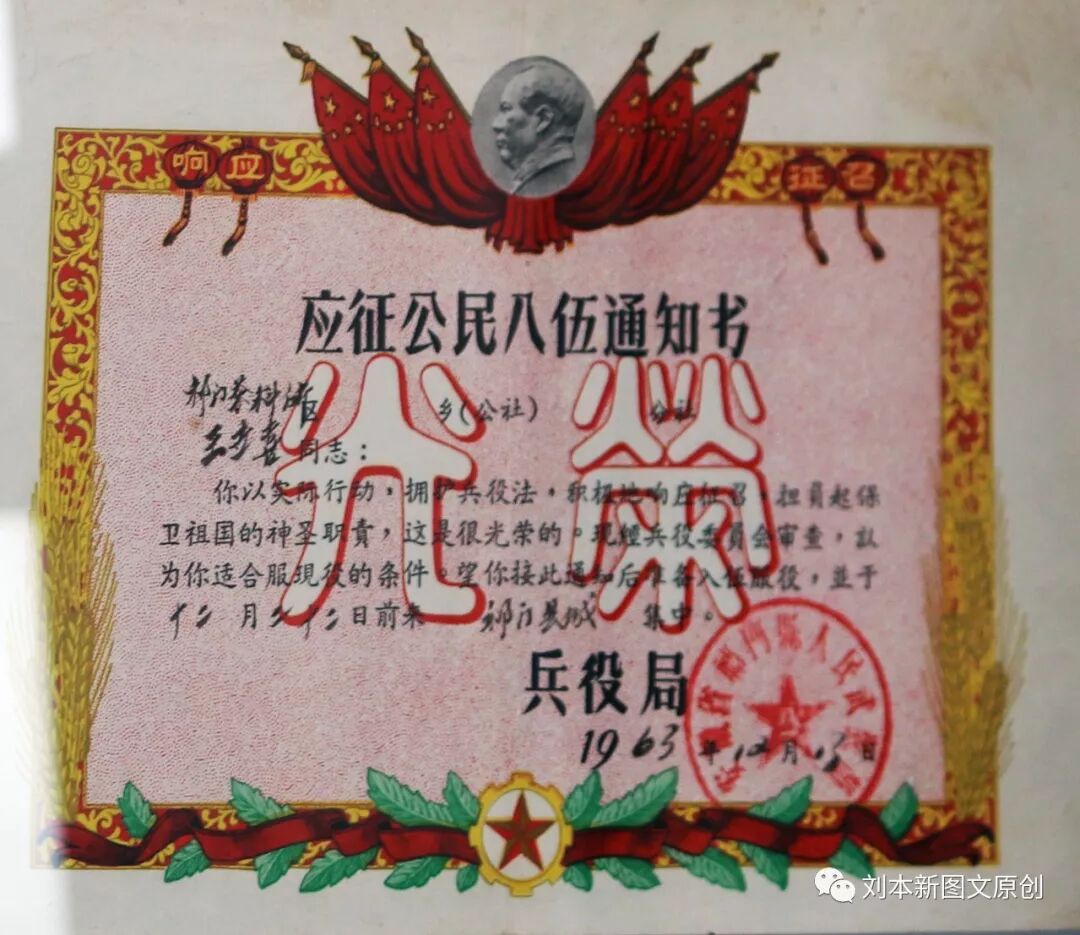 响应
征召
应征公民入伍通知书
光荣
祁门茶科所区 乡(公社) 分社
同志：
你以实际行动，拥护兵役法，积极地响应征召，担員起保
卫祖国的神圣职責，这是很光荣的。現經兵役委員会审查，认
为你适合服現役的条件。望你接此通知后准备入伍服役，並于
十二月二十二日前来 祁门县城 集中。
兵役局
1963年12月13日
省祁門縣人民武
八一
刘本新图文原创